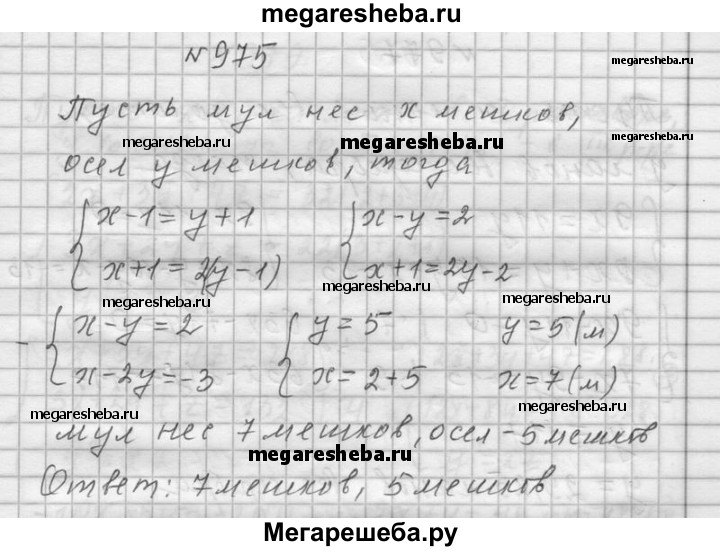 megaresheba.ru
№975
megaresheba.ru
Пусть мул нес x мешков,
megaresheba.ru megaresheba.ru
осел y мешков, тогда
{ x-1=y+1 { x-y=2
x+1=2(y-1) x+1=2y-2
megaresheba.ru megaresheba.ru megaresheba.ru
- { x-y=2 { y=5 y=5(м)
x-2y=-3 x=2+5 x=7(м)
megaresheba.ru megaresheba.ru
мул нес 7 мешков, осел - 5 мешков
megaresheba.ru
Ответ: 7 мешков, 5 мешков
Мегарешеба.ру